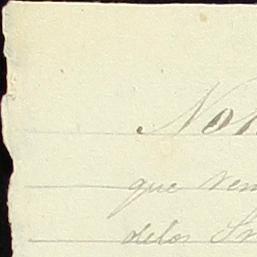 Not
que ven
delos Sr